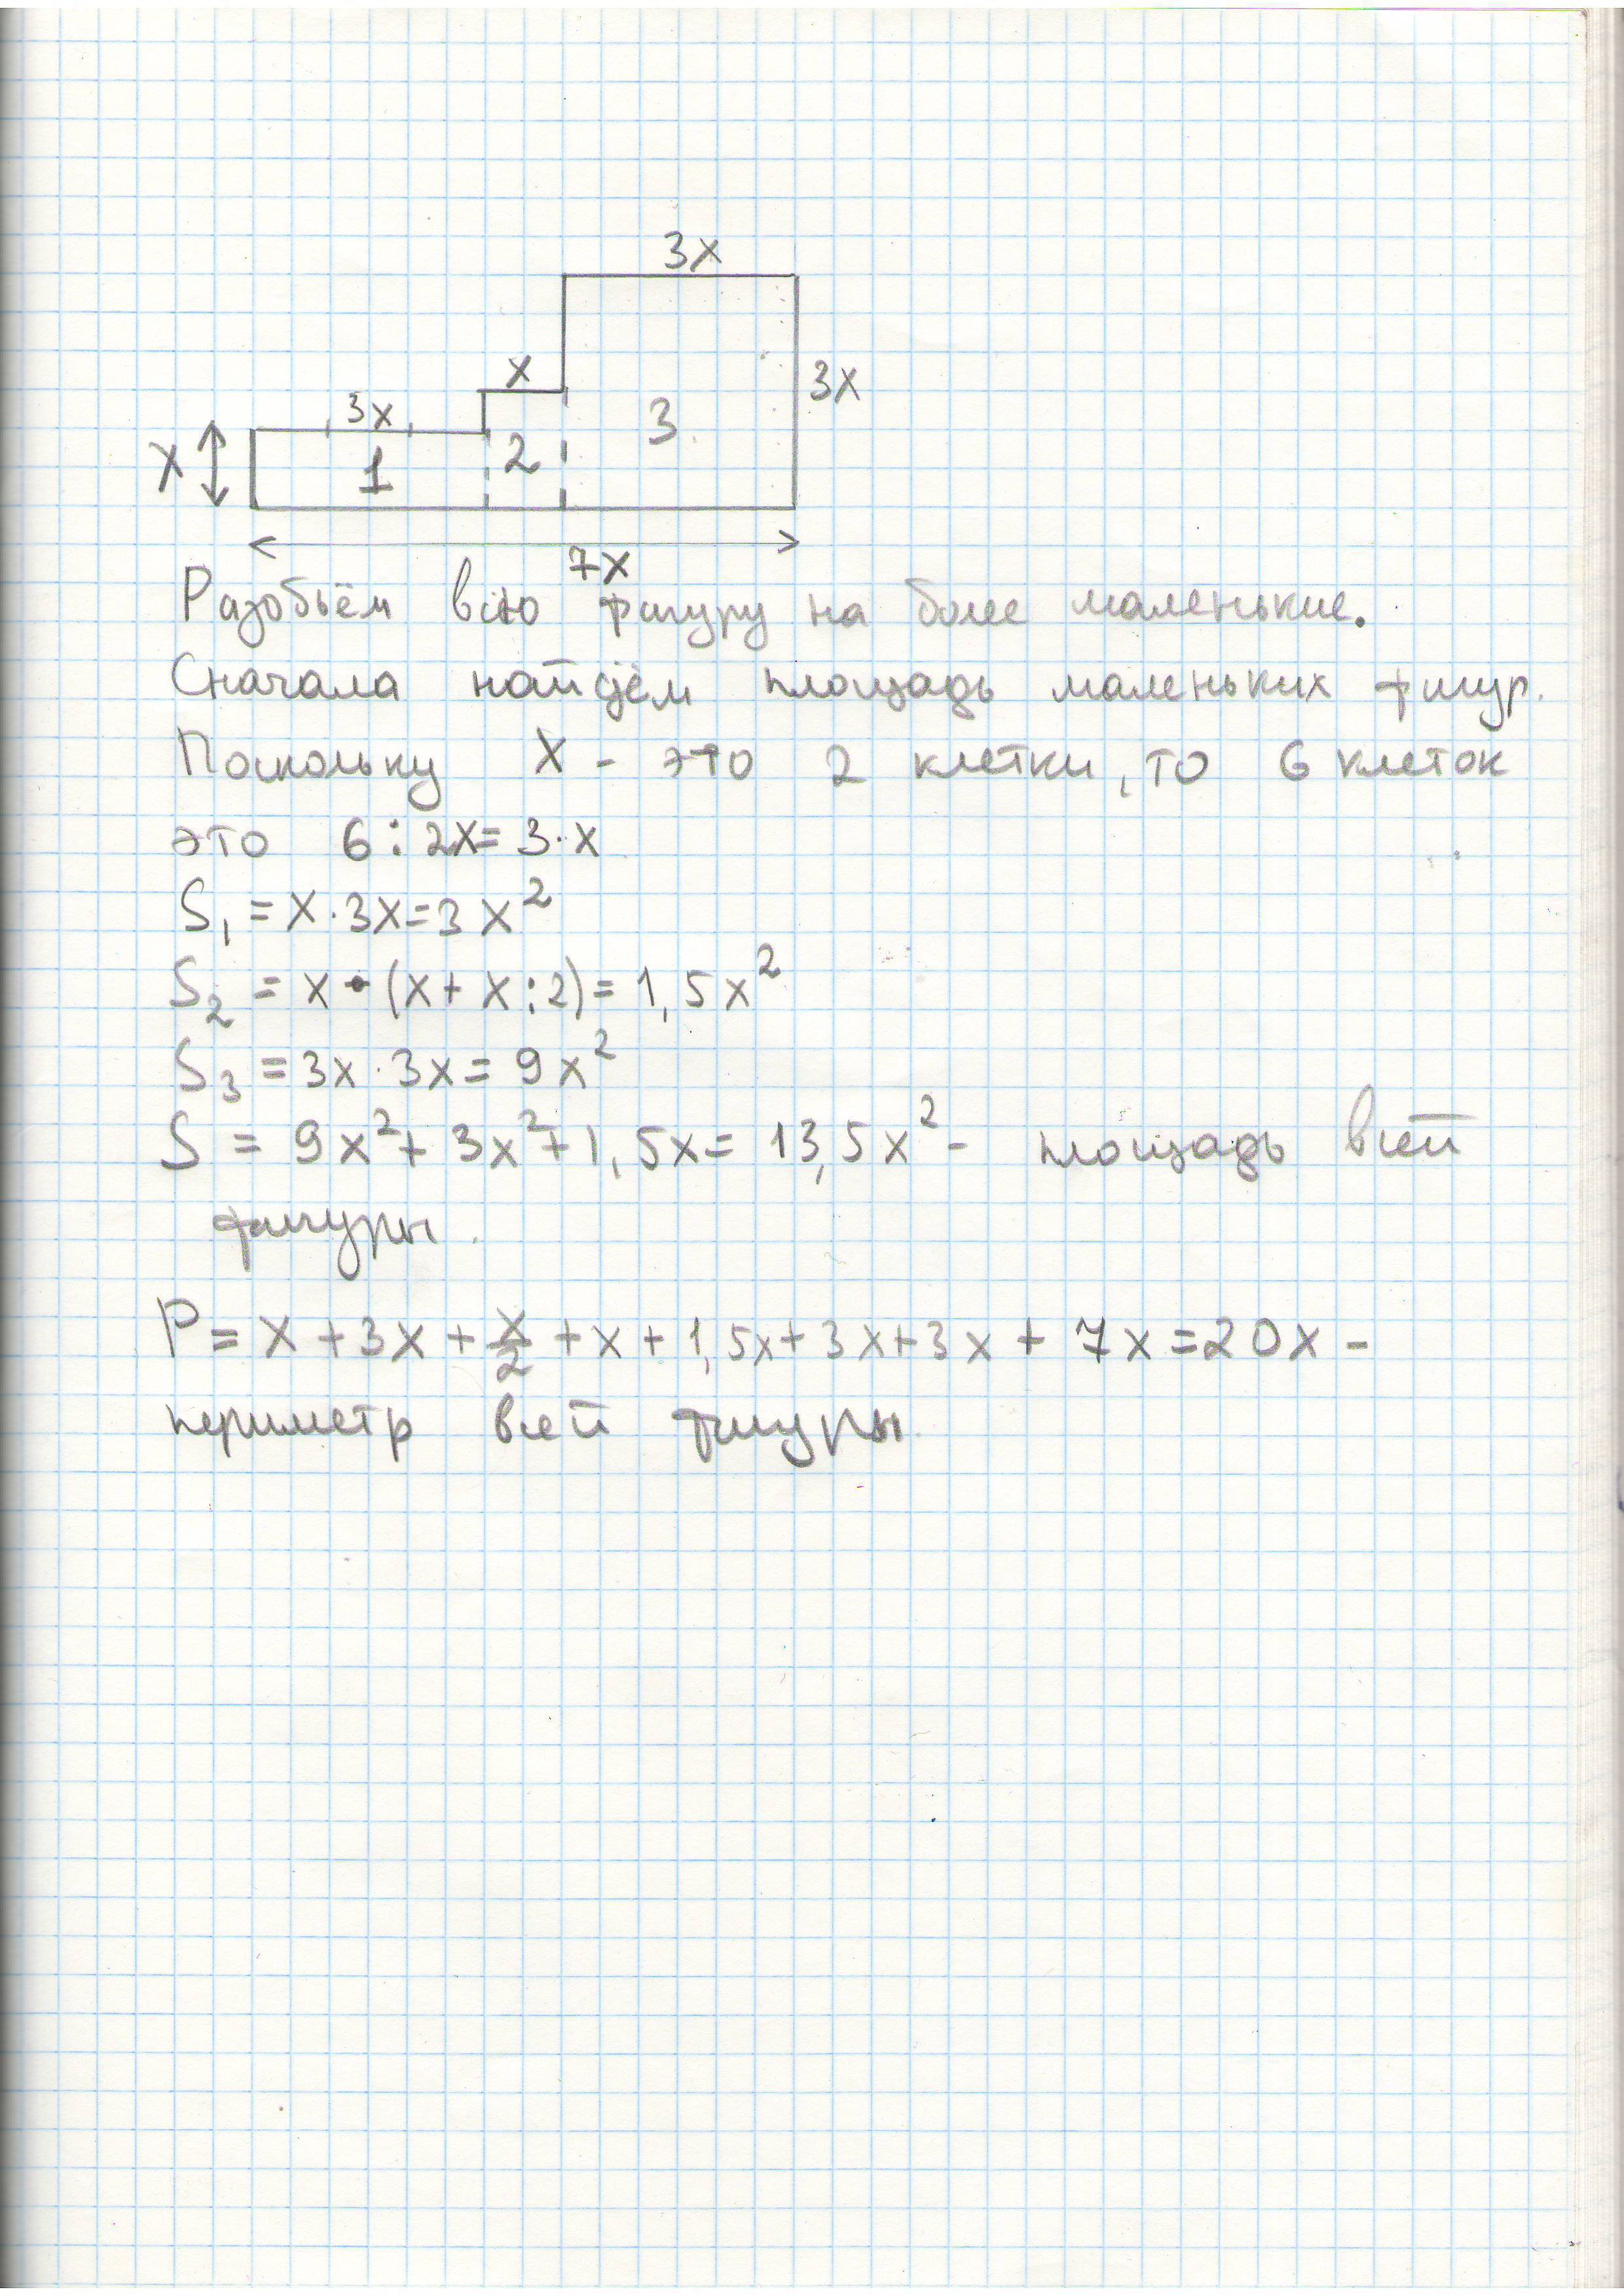 3x
x
3x
3x
x
1
2
3
7x
Разобьём всю фигуру на более маленькие.
Сначала найдём площадь маленьких фигур.
Поскольку X - это 2 клетки, то 6 клеток
это 6 : 2x = 3·x
S₁ = x · 3x = 3x²
S₂ = x · (x + x : 2) = 1,5x²
S₃ = 3x · 3x = 9x²
S = 9x² + 3x² + 1,5x = 13,5x² - площадь всей
фигуры.
P = x + 3x + x/2 + x + 1,5x + 3x + 3x + 7x = 20x -
периметр всей фигуры.